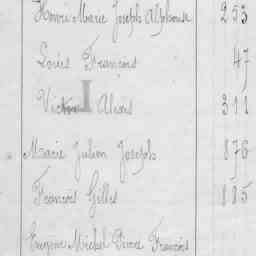 Henri Marie Joseph Alphonse 253
Louis François 47
Victor Aloïs 311
Marie Julien Joseph 876
François Gilles 185
Eugène Michel Pierre François